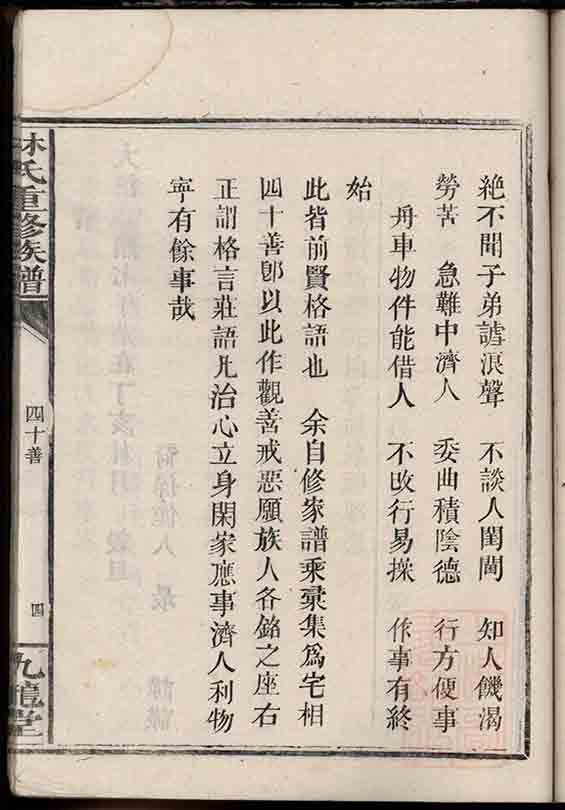 絶不聞子弟謔浪聲　不談人閨閫　知人饑渴
勞苦　急難中濟人　委曲積陰德　行方便事
舟車物件能借人　不改行易操　作事有終
始
此皆前賢格語也　余自修家譜乘彙集爲宅相
四十善卽以此作觀善戒惡願族人各銘之座右
正謂格言莊語凡治心立身閑家應事濟人利物
寧有餘事哉
林氏重修族譜
四十善
四
九龍堂